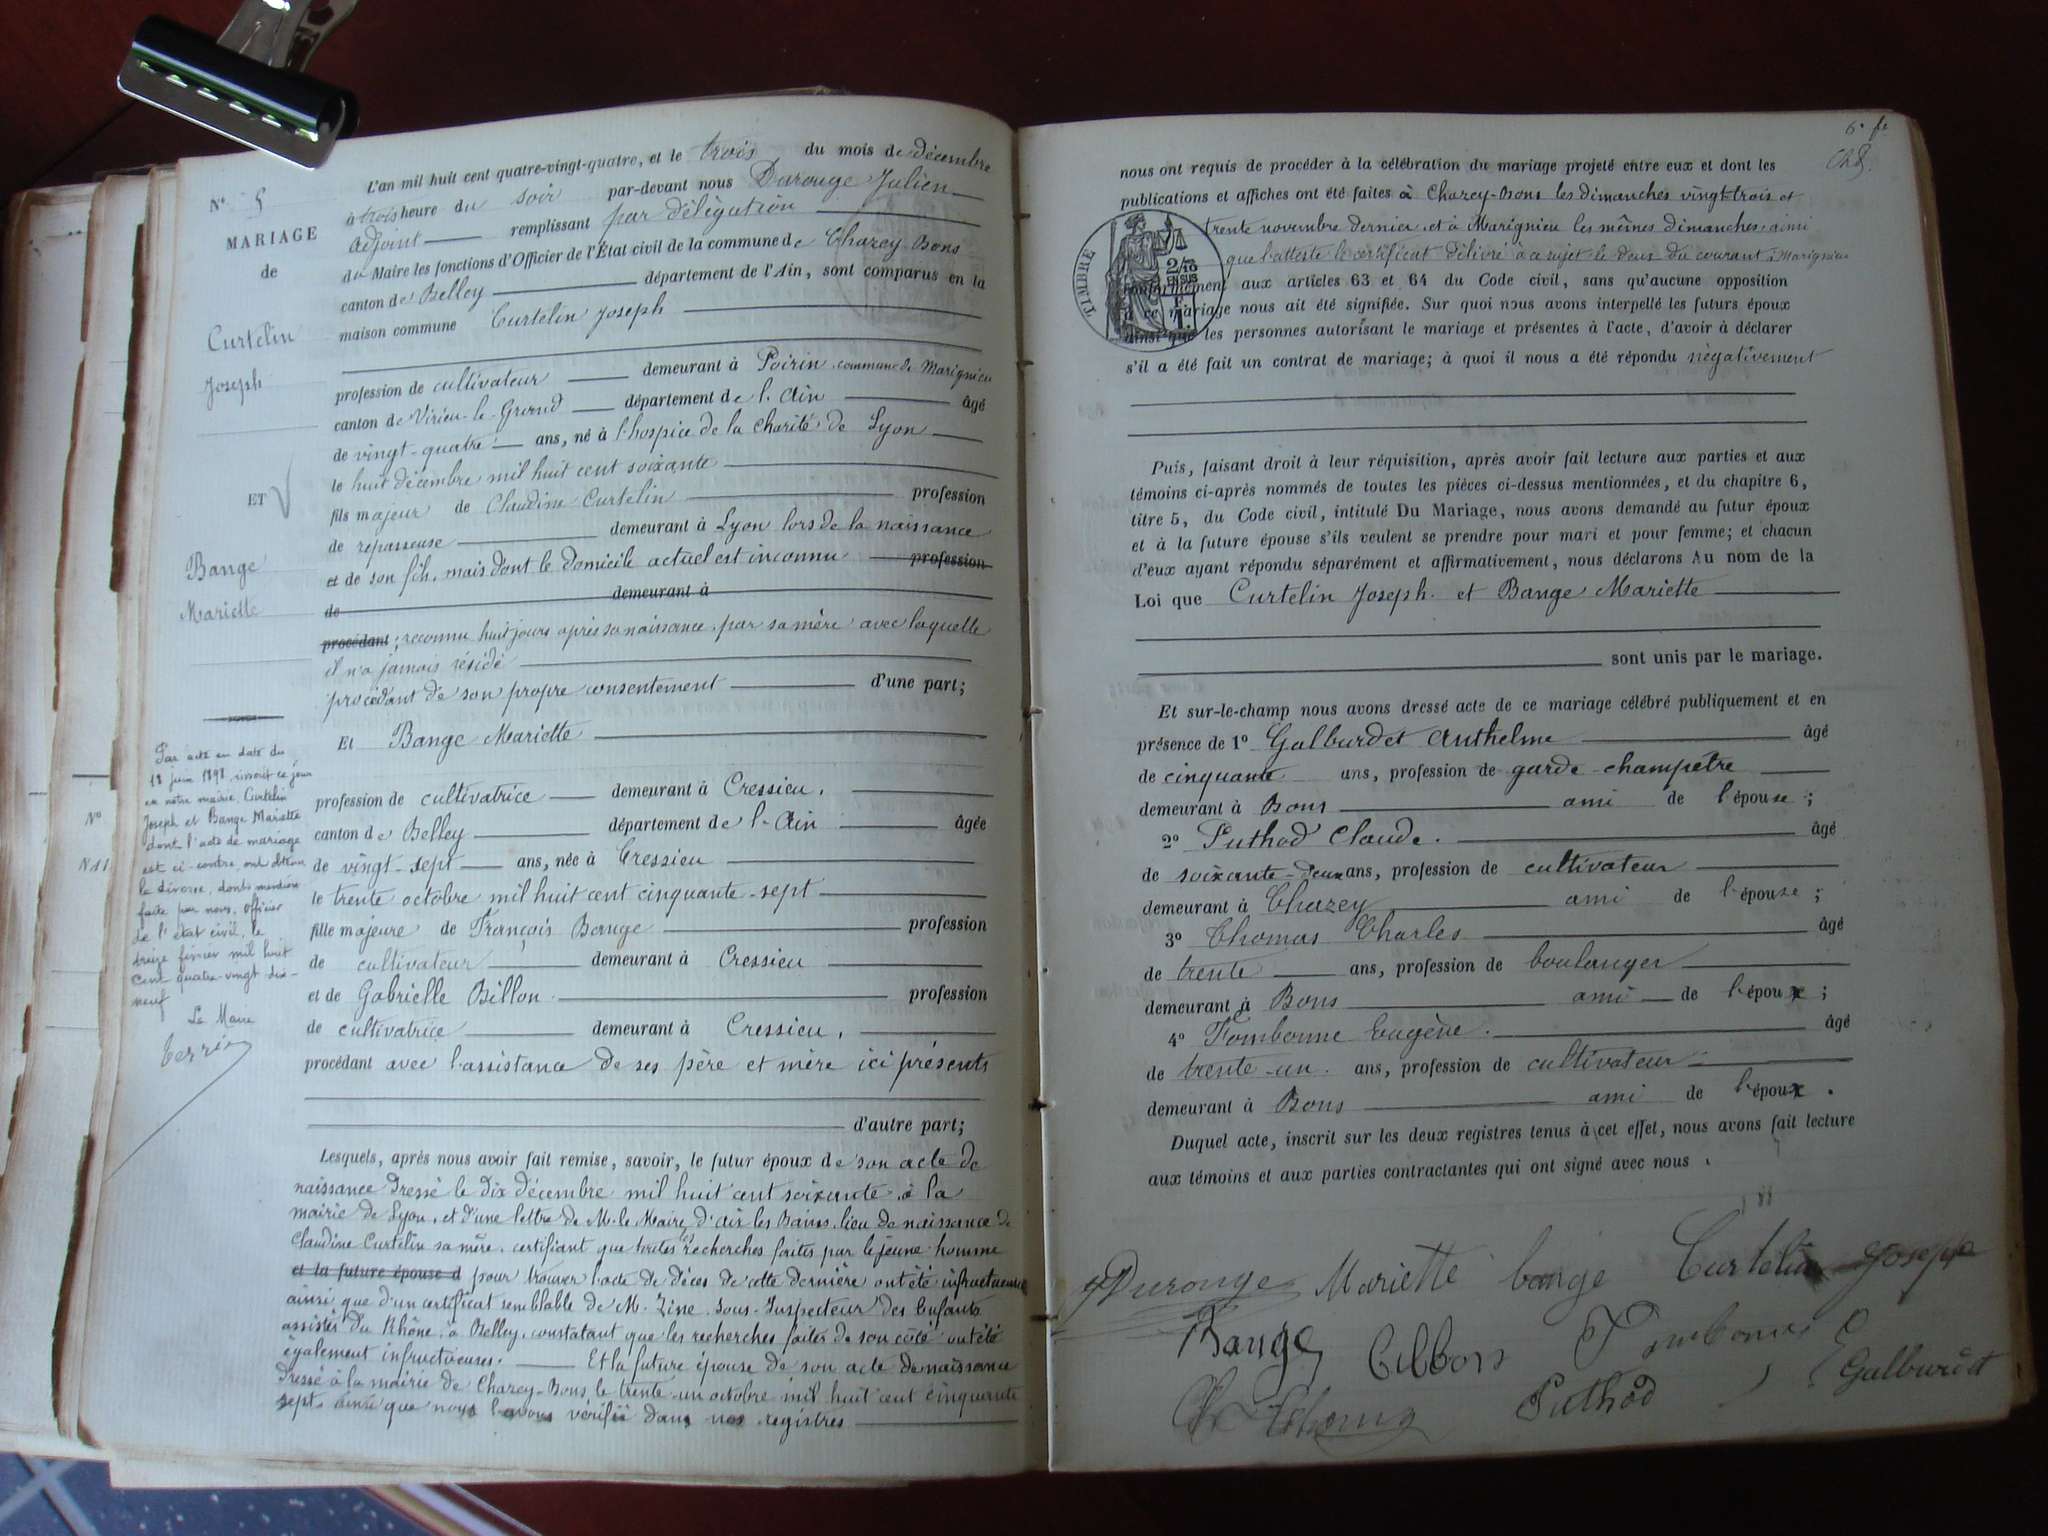 N° 5
MARIAGE
de
Curtelin
Joseph
ET
Bange
Mariette
Par acte en date du
18 juin 1898, inscrit ce jour
en notre mairie, Curtelin
Joseph et Bange Mariette
dont l'acte de mariage
est ci-contre ont obtenu
le divorce, dont mention
faite par nous, officier
de l'état civil, le
treize février mil huit
cent quatre-vingt dix-
neuf
Le Maire
N°
N 11
L'an mil huit cent quatre-vingt-quatre, et le trois du mois de décembre
à trois heure du soir par-devant nous Durouge Julien
adjoint remplissant par délégation
du Maire les fonctions d'Officier de l'État civil de la commune de Chazey-Bons
canton de Belley département de l'Ain, sont comparus en la
maison commune Curtelin Joseph
profession de cultivateur demeurant à Poirin commune de Marignieu
canton de Virieu-le-Grand département de l'Ain âgé
de vingt-quatre ans, né à l'hospice de la Charité de Lyon
le huit décembre mil huit cent soixante
fils majeur de Claudine Curtelin profession
de repasseuse demeurant à Lyon lors de la naissance
et de son fils, mais dont le domicile actuel est inconnu profession
de demeurant à
procédant ; reconnu huit jours après sa naissance par sa mère avec laquelle
il n'a jamais résidé
procédant de son propre consentement d'une part;
Et Bange Mariette
profession de cultivatrice demeurant à Cressieu,
canton de Belley département de l'Ain âgée
de vingt-sept ans, née à Cressieu
le trente octobre mil huit cent cinquante-sept
fille majeure de François Bange profession
de cultivateur demeurant à Cressieu
et de Gabrielle Billon profession
de cultivatrice demeurant à Cressieu,
procédant avec l'assistance de ses père et mère ici présents
d'autre part;
Lesquels, après nous avoir fait remise, savoir, le futur époux de son acte de
naissance dressé le dix décembre mil huit cent soixante à la
mairie de Lyon, et d'une lettre de M. le Maire d'aix les Bains, lieu de naissance de
Claudine Curtelin sa mère, certifiant que toutes les recherches faites par le jeune homme
et la future épouse d pour trouver l'acte de décès de cette dernière ont été infructueuses
ainsi que d'un certificat semblable de M. Zine Sous-Inspecteur des Enfants
assistés du Rhône, à Belley, constatant que les recherches faites de son côté ont été
également infructueuses. Et la future épouse de son acte de naissance
dressé à la mairie de Chazey-Bons le trente-un octobre mil huit cent cinquante
sept, ainsi que nous l'avons vérifié dans nos registres
6e f
nous ont requis de procéder à la célébration du mariage projeté entre eux et dont les
publications et affiches ont été faites à Chazey-Bons les dimanches vingt-trois et
trente novembre dernier et à Marignieu les mêmes dimanches ainsi
que l'atteste le certificat délivré à ce sujet le deux du courant à Marignieu
TIMBRE
2/10
EN SUS
F.
1.
conformément aux articles 63 et 64 du Code civil, sans qu'aucune opposition
à ce mariage nous ait été signifiée. Sur quoi nous avons interpellé les futurs époux
ainsi que les personnes autorisant le mariage et présentes à l'acte, d'avoir à déclarer
s'il a été fait un contrat de mariage; à quoi il nous a été répondu négativement
Puis, faisant droit à leur réquisition, après avoir fait lecture aux parties et aux
témoins ci-après nommés de toutes les pièces ci-dessus mentionnées, et du chapitre 6,
titre 5, du Code civil, intitulé Du Mariage, nous avons demandé au futur époux
et à la future épouse s'ils veulent se prendre pour mari et pour femme; et chacun
d'eux ayant répondu séparément et affirmativement, nous déclarons Au nom de la
Loi que Curtelin Joseph et Bange Mariette
sont unis par le mariage.
Et sur-le-champ nous avons dressé acte de ce mariage célébré publiquement et en
présence de 1° Galburdet Anthelme âgé
de cinquante ans, profession de garde-champêtre
demeurant à Bons ami de l'épouse ;
2° Puthod Claude. âgé
de soixante-deux ans, profession de cultivateur
demeurant à Chazey ami de l'épouse ;
3° Thomas Charles âgé
de trente ans, profession de boulanger
demeurant à Bons ami de l'époux ;
4° Fombonne Eugène. âgé
de trente-un ans, profession de cultivateur
demeurant à Bons ami de l'époux .
Duquel acte, inscrit sur les deux registres tenus à cet effet, nous avons fait lecture
aux témoins et aux parties contractantes qui ont signé avec nous .
Durouge Mariette bange Curtelin Joseph
Bange
Puthod Galburdet